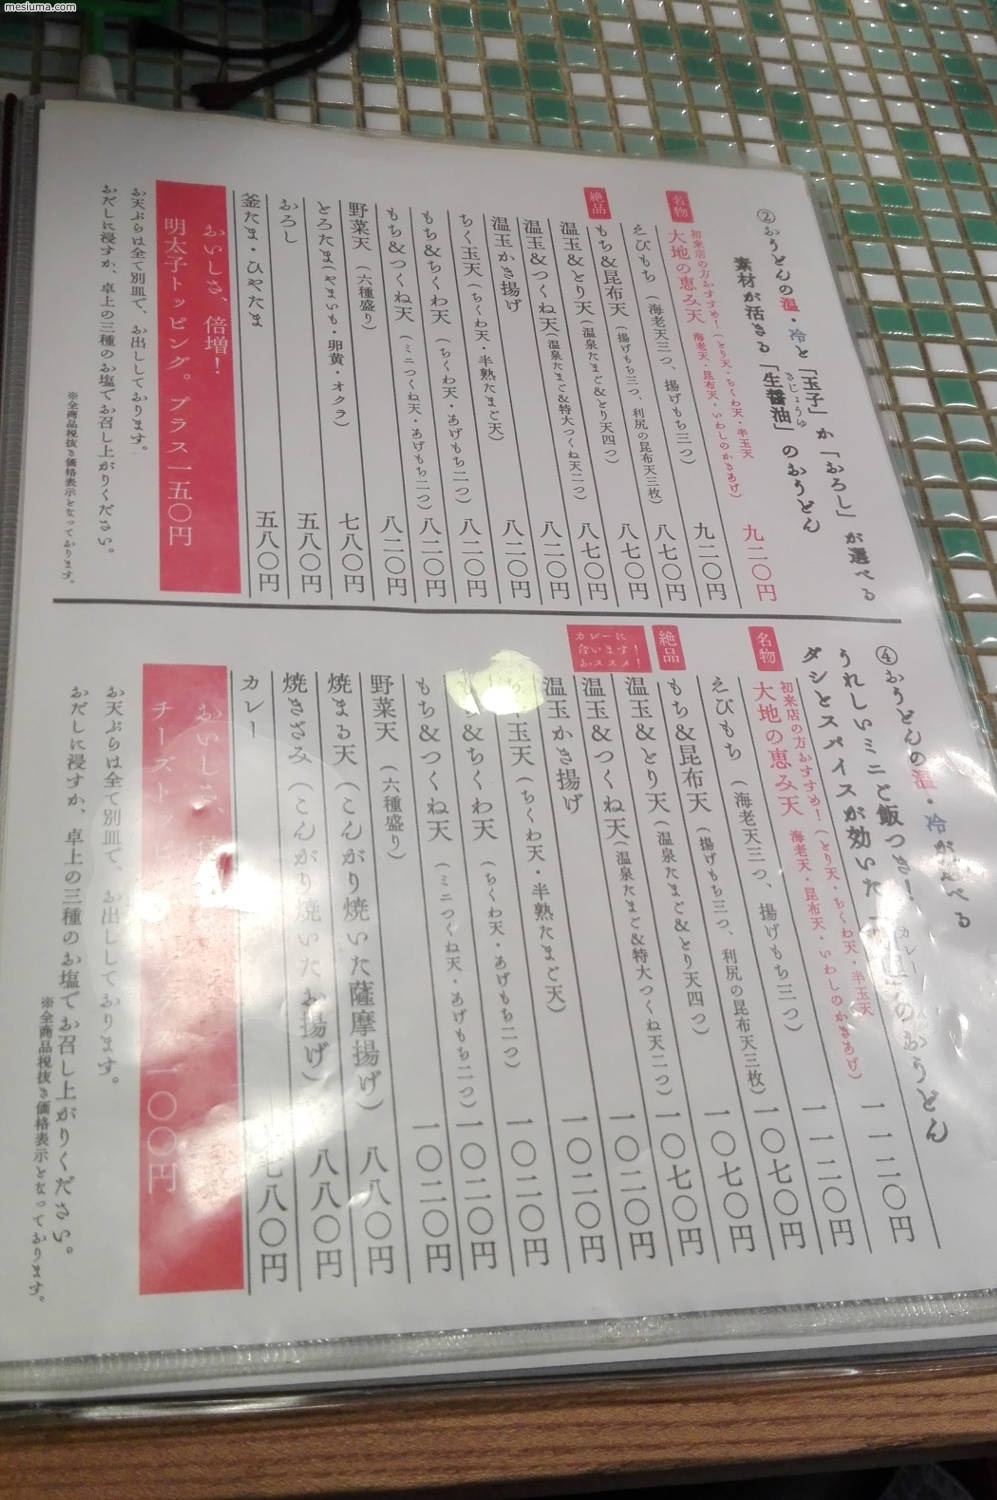 mesiuma.com
②おうどんの温・冷と「玉子」か「おろし」が選べる
素材が活きる「生醤油」のおうどん
きじょうゆ
名物
初来店の方おすすめ！
大地の恵み天
（とり天・ちくわ天・半玉天
海老天・昆布天・いわしのかきあげ）
九二〇円
えびもち（海老天三つ、揚げもち三つ）
九二〇円
絶品
もち&昆布天（揚げもち三つ、利尻の昆布天三枚）
八七〇円
温玉&とり天（温泉たまご&とり天四つ）
八七〇円
温玉&つくね天（温泉たまご&特大つくね天二つ）
八七〇円
温玉かき揚げ
八二〇円
ちく玉天（ちくわ天・半熟たまご天）
八二〇円
もち&ちくわ天（ちくわ天・あげもち二つ）
八二〇円
もち&つくね天（ミニつくね天・あげもち二つ）
八二〇円
野菜天（六種盛り）
七八〇円
とろたま（やまいも・卵黄・オクラ）
おろし
五八〇円
釜たま・ひやたま
五八〇円
おいしさ、倍増！
明太子トッピング。プラス一五〇円
お天ぷらは全て別皿で、お出ししております。
おだしに浸すか、卓上の三種のお塩でお召し上がりください。
※全商品税抜き価格表示となっております。
④おうどんの温・冷が選べる
うれしいミニご飯つき！
ダシとスパイスが効いた
のおうどん
名物
初来店の方おすすめ！
大地の恵み天
（とり天・ちくわ天・半玉天
海老天・昆布天・いわしのかきあげ）
一一二〇円
えびもち（海老天三つ、揚げもち三つ）
一一二〇円
絶品
もち&昆布天（揚げもち三つ、利尻の昆布天三枚）
一〇七〇円
温玉&とり天（温泉たまご&とり天四つ）
一〇七〇円
カレーに
合います！
おススメ！
温玉&つくね天（温泉たまご&特大つくね天二つ）
一〇七〇円
温玉かき揚げ
一〇二〇円
玉天（ちくわ天・半熟たまご天）
一〇二〇円
&ちくわ天（ちくわ天・あげもち二つ）
一〇二〇円
もち&つくね天（ミニつくね天・あげもち二つ）
一〇二〇円
野菜天（六種盛り）
焼まる天（こんがり焼いた薩摩揚げ）
八八〇円
焼きざみ（こんがり焼いたお揚げ）
八八〇円
カレー
七八〇円
おいしさ、
チーズト
一〇〇円
お天ぷらは全て別皿で、お出ししております。
おだしに浸すか、卓上の三種のお塩でお召し上がりください。
※全商品税抜き価格表示となっております。